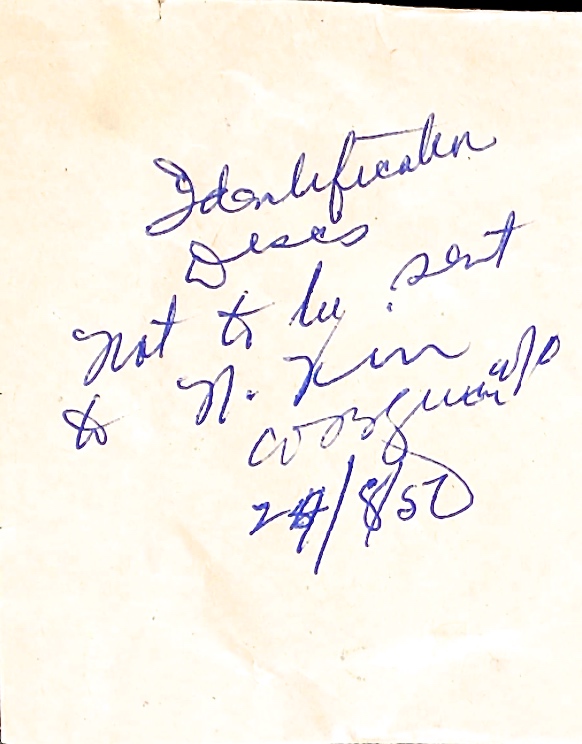 Identification
Discs
Not to be sent
to N. Kin
24/8/50